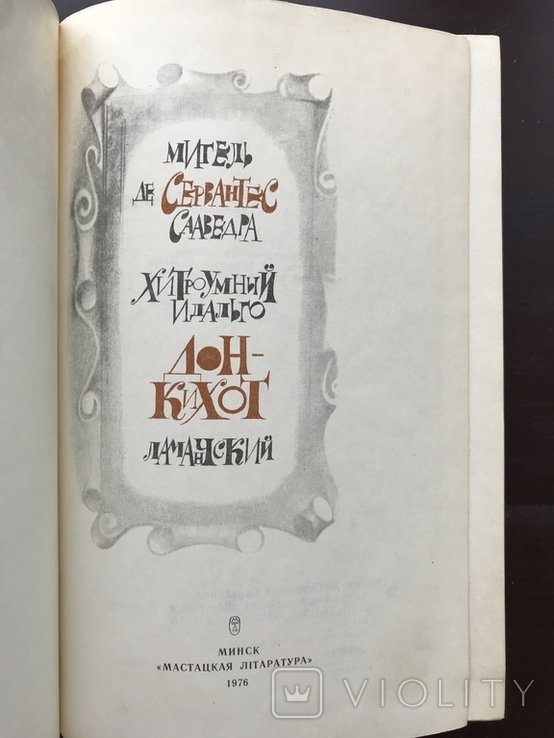 МИГЕЛЬ
ДЕ СЕРВАНТЕС
СААВЕДРА
ХИТРОУМНЫЙ
ИДАЛЬГО
ДОН-
КИХОТ
ЛАМАНЧСКИЙ
МИНСК
«МАСТАЦКАЯ ЛІТАРАТУРА»
1976
VIOLITY